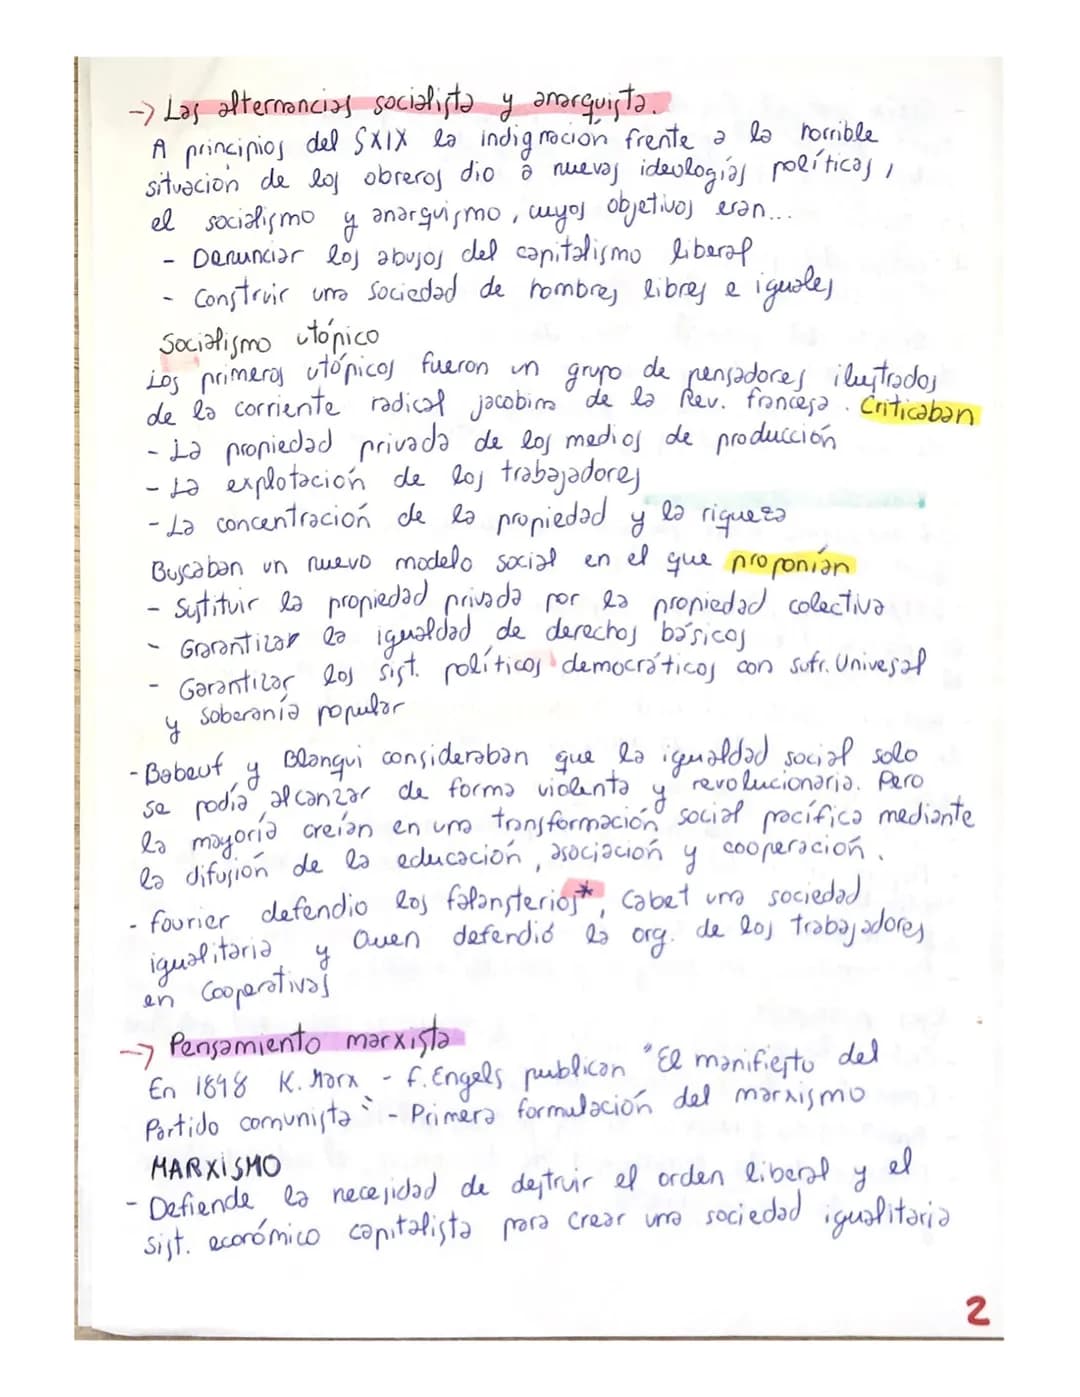 -> Las alternancias socialista y anarquista.
A principios del SXIX la indignación frente a la horrible
situación de los obreros dio a nuevas ideologías políticas,
el socialismo y anarquismo, cuyos objetivos eran...
- Denunciar los abusos del capitalismo liberal
- Construir una sociedad de hombres libres e iguales
Socialismo utópico
Los primeros utópicos fueron un grupo de pensadores ilustrados
de la corriente radical jacobina de la Rev. francesa. Criticaban
- La propiedad privada de los medios de producción
- La explotación de los trabajadores
- La concentración de la propiedad y la riqueza
Buscaban un nuevo modelo social en el que proponían
- Sustituir la propiedad privada por la propiedad colectiva
- Garantizar la igualdad de derechos básicos
- Garantizar los sist. políticos democráticos con sufr. Univesal
y soberanía popular
- Babeuf y Blanqui consideraban que la igualdad social solo
se podía alcanzar de forma violenta y revolucionaria. Pero
la mayoría creían en una transformación social pacífica mediante
la difusión de la educación, asociación y cooperación.
- Fourier defendio los falansterios*, Cabet una sociedad
igualitaria y Owen defendió la org. de los trabajadores
en cooperativas
-> Pensamiento marxista
En 1898 K. Marx - F. Engels publican "El manifiesto del
Partido comunista" - Primera formulación del marxismo
MARXISMO
- Defiende la necesidad de destruir el orden liberal y el
sist. económico capitalista para crear una sociedad igualitaria
2